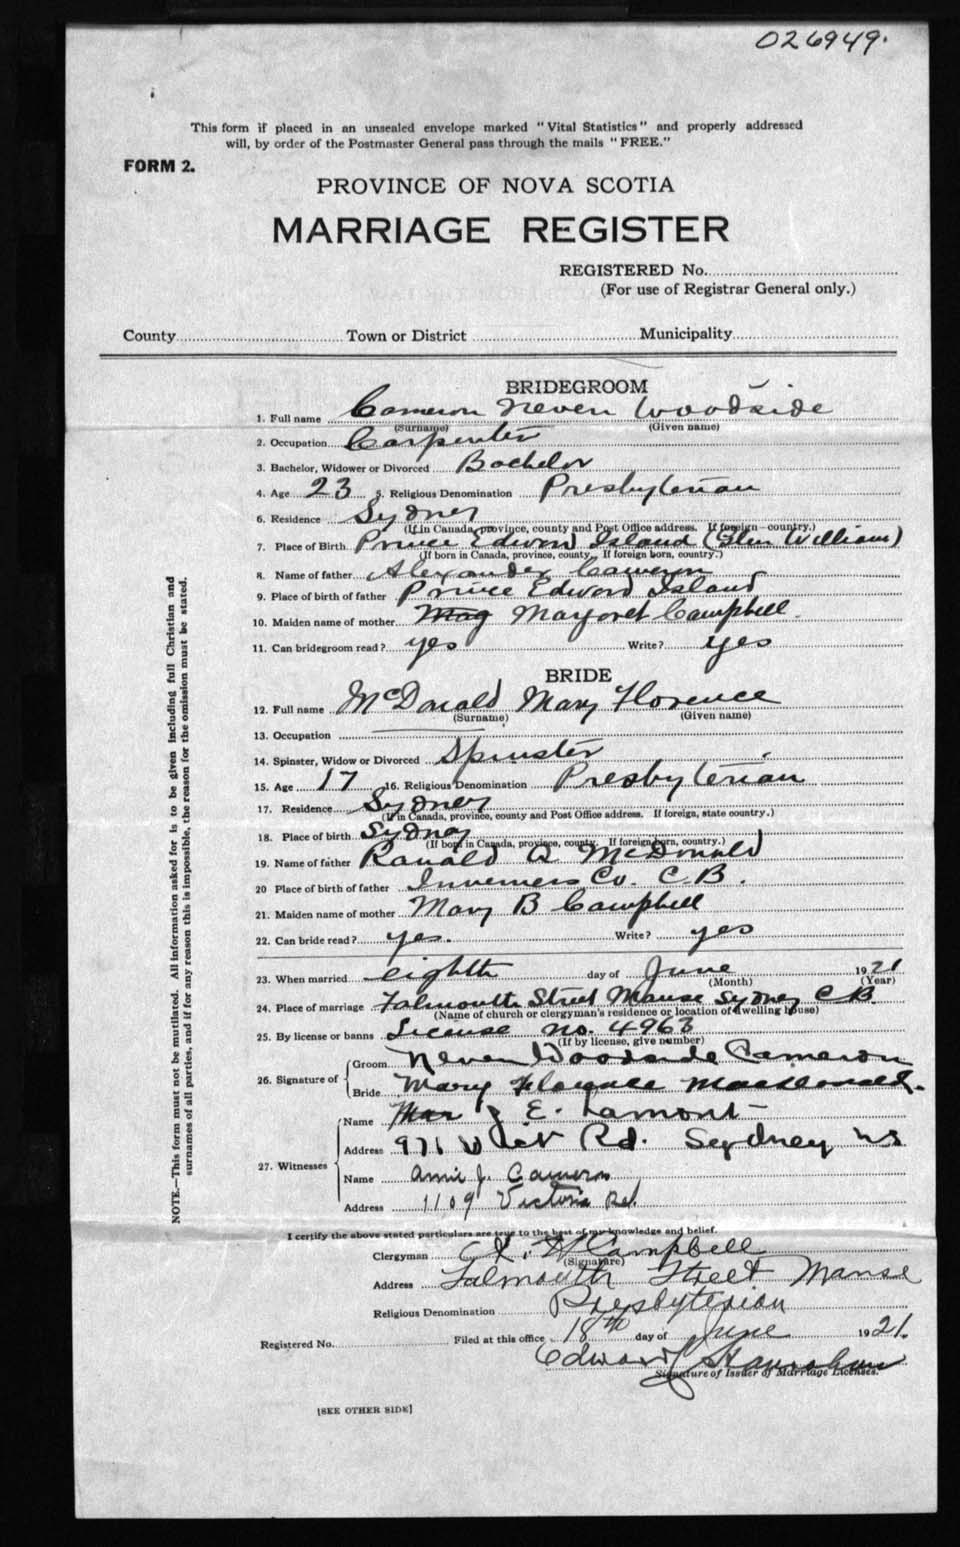 026949.
This form if placed in an unsealed envelope marked "Vital Statistics" and properly addressed
will, by order of the Postmaster General pass through the mails "FREE."
FORM 2.
PROVINCE OF NOVA SCOTIA
MARRIAGE REGISTER
REGISTERED No.
(For use of Registrar General only.)
County Town or District Municipality
BRIDEGROOM
1. Full name Cameron Neven Woodside
(Surname) (Given name)
2. Occupation Carpenter
3. Bachelor, Widower or Divorced Bachelor
4. Age 23 5. Religious Denomination Presbyterian
6. Residence Sydney
(If in Canada, province, county and Post Office address. If foreign—country.)
7. Place of Birth Prince Edward Island (Glen William)
(If born in Canada, province, county. If foreign born, country.)
8. Name of father Alexander Cameron
9. Place of birth of father Prince Edward Island
10. Maiden name of mother Mag Margaret Campbell.
11. Can bridegroom read? yes Write? yes
BRIDE
12. Full name McDonald Mary Florence
(Surname) (Given name)
13. Occupation
14. Spinster, Widow or Divorced Spinster
15. Age 17 16. Religious Denomination Presbyterian
17. Residence Sydney
(If in Canada, province, county and Post Office address. If foreign, state country.)
18. Place of birth Sydney
(If born in Canada, province, county. If foreign born, country.)
19. Name of father Ranald A McDonald
20 Place of birth of father Inverness Co. C B.
21. Maiden name of mother Mary B Campbell
22. Can bride read? yes. Write? yes
23. When married eighth day of June 1921
(Month) (Year)
24. Place of marriage Falmouth Street Manse Sydney C B
(Name of church or clergyman's residence or location of dwelling house)
25. By license or banns License no. 4963
(If by license, give number)
26. Signature of Groom Neven Woodside Cameron
Bride Mary Florence MacDonald.
27. Witnesses Name J E. Lamont
Address 971 Vict Rd. Sydney NS
Name Annie J. Cameron
Address 1109 Victoria Rd.
I certify the above stated particulars are true to the best of my knowledge and belief.
Clergyman Campbell
(Signature)
Address Falmouth Street Manse
Religious Denomination Presbyterian
Registered No. Filed at this office 18th day of June 1921.
Edward
Signature of Issuer of Marriage Licenses.
[SEE OTHER SIDE]
NOTE.—This form must not be mutilated. All information asked for is to be given including full Christian and
surnames of all parties, and if for any reason this is impossible, the reason for the omission must be stated.